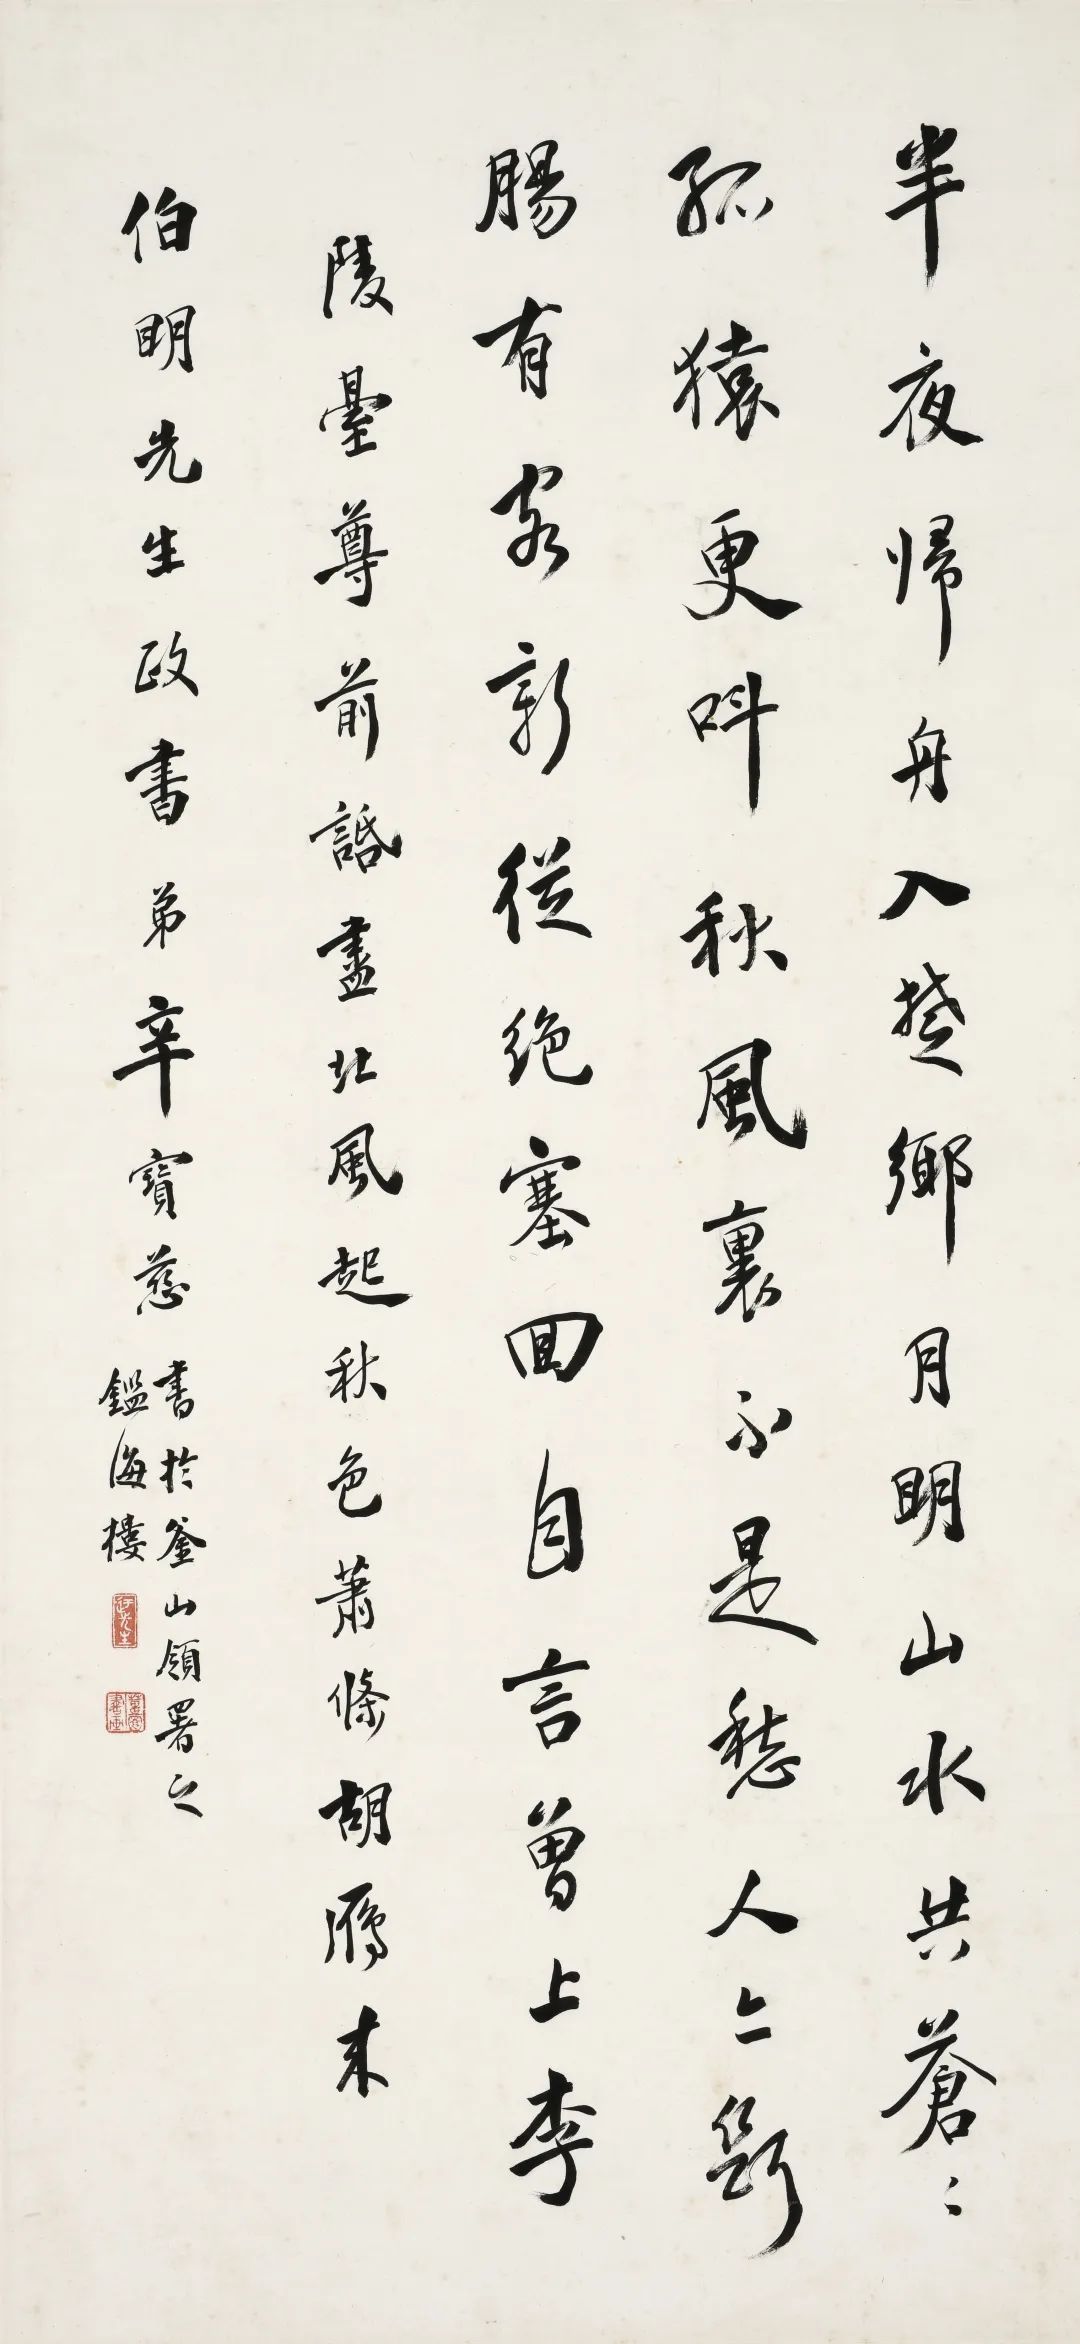 半夜帰舟入楚鄉月明山水共蒼〻
孤猿更呌秋風裏不是愁人亦斷
腸有客新從絕塞回自言曾上李
陵臺尊前話盡北風起秋色蕭條胡鴈来
伯明先生政書弟辛寶慈
書於釜山領署之
鑑海樓